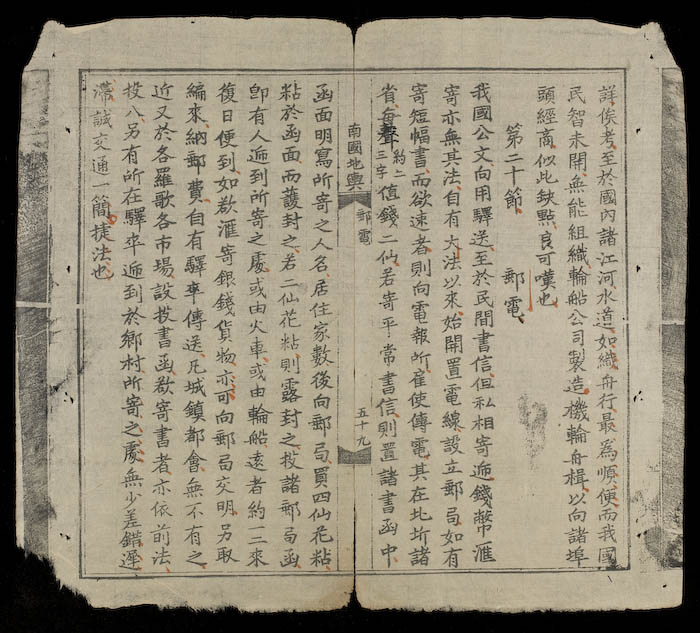 詳俟考、至於國內諸江河水道、如織、舟行最為順便、而我國
民智未開、無能組織輪船公司、製造機輪舟楫、以向諸埠
頭經商、似此缺點、良可嘆也、
第二十節、 郵電、
我國公文、向用驛送、至於民間書信、但私相寄遞、錢幣、匯
寄亦無其法、自有大法以來、始開置電線、設立郵局、如有
寄短幅書、而欲速者、則向電報所、雇使傳電、其在北圻諸
省、每聲約二三字值錢二仙、若寄平常書信、則置諸書函中、
南國地輿 郵電 五十九
函面明寫所寄之人名、居住家數、後向郵局買四仙花粘、
粘於函面而護封之、若二仙花粘、則露封之、投諸郵局函、
卽有人遞到所寄之處、或由火車、或由輪船、遠者約一二來
復日便到、如欲滙寄銀錢貨物、亦可向郵局交明、另取
編來、納郵費、自有驛卒傳送、凡城鎮都會、無不有之、
近又於各羅歌各市場、設投書函、欲寄書者、亦依前法、
投入、另有所在驛卒遞到於鄉村所寄之處、無少差錯遲
滯、誠交通一簡捷法也、